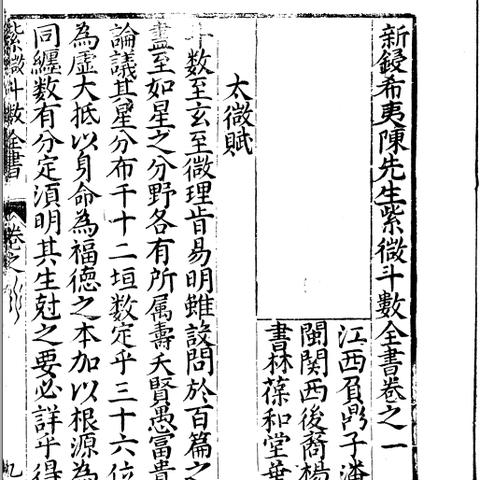 新鋟希夷陳先生紫微斗數全書卷之一
江西負鼎子潘
閩關西後裔楊
書林葆和堂
太微賦
斗数至玄至微理肯易明雖設問於百篇之
盡至如星之分野各有所属壽夭賢愚富貴
論議其星分布于十二垣数定乎三十六位
為虛大抵以身命為福德之本加以根源為
同纏数有分定須明其生尅之要必詳乎得
紫微斗數全書 卷之